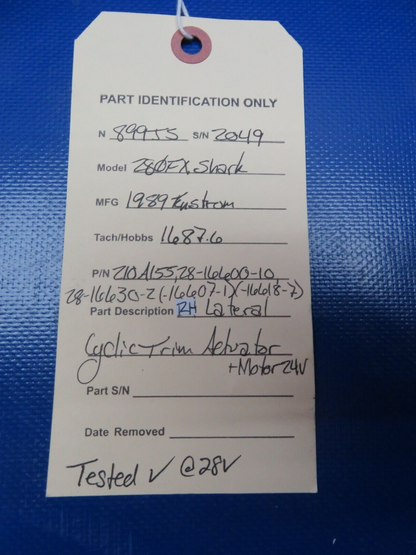 PART IDENTIFICATION ONLY
N 899JJ S/N 2049
Model 280FX, Shark
MFG 1989 Enstrom
Tach/Hobbs 1687.6
P/N 210A155, 28-16600-10
28-16630-2 (-16607-1)(-16618-7)
Part Description RH Lateral
Cyclic Trim Actuator
+ Motor 24V
Part S/N
Date Removed
Tested √ @28V